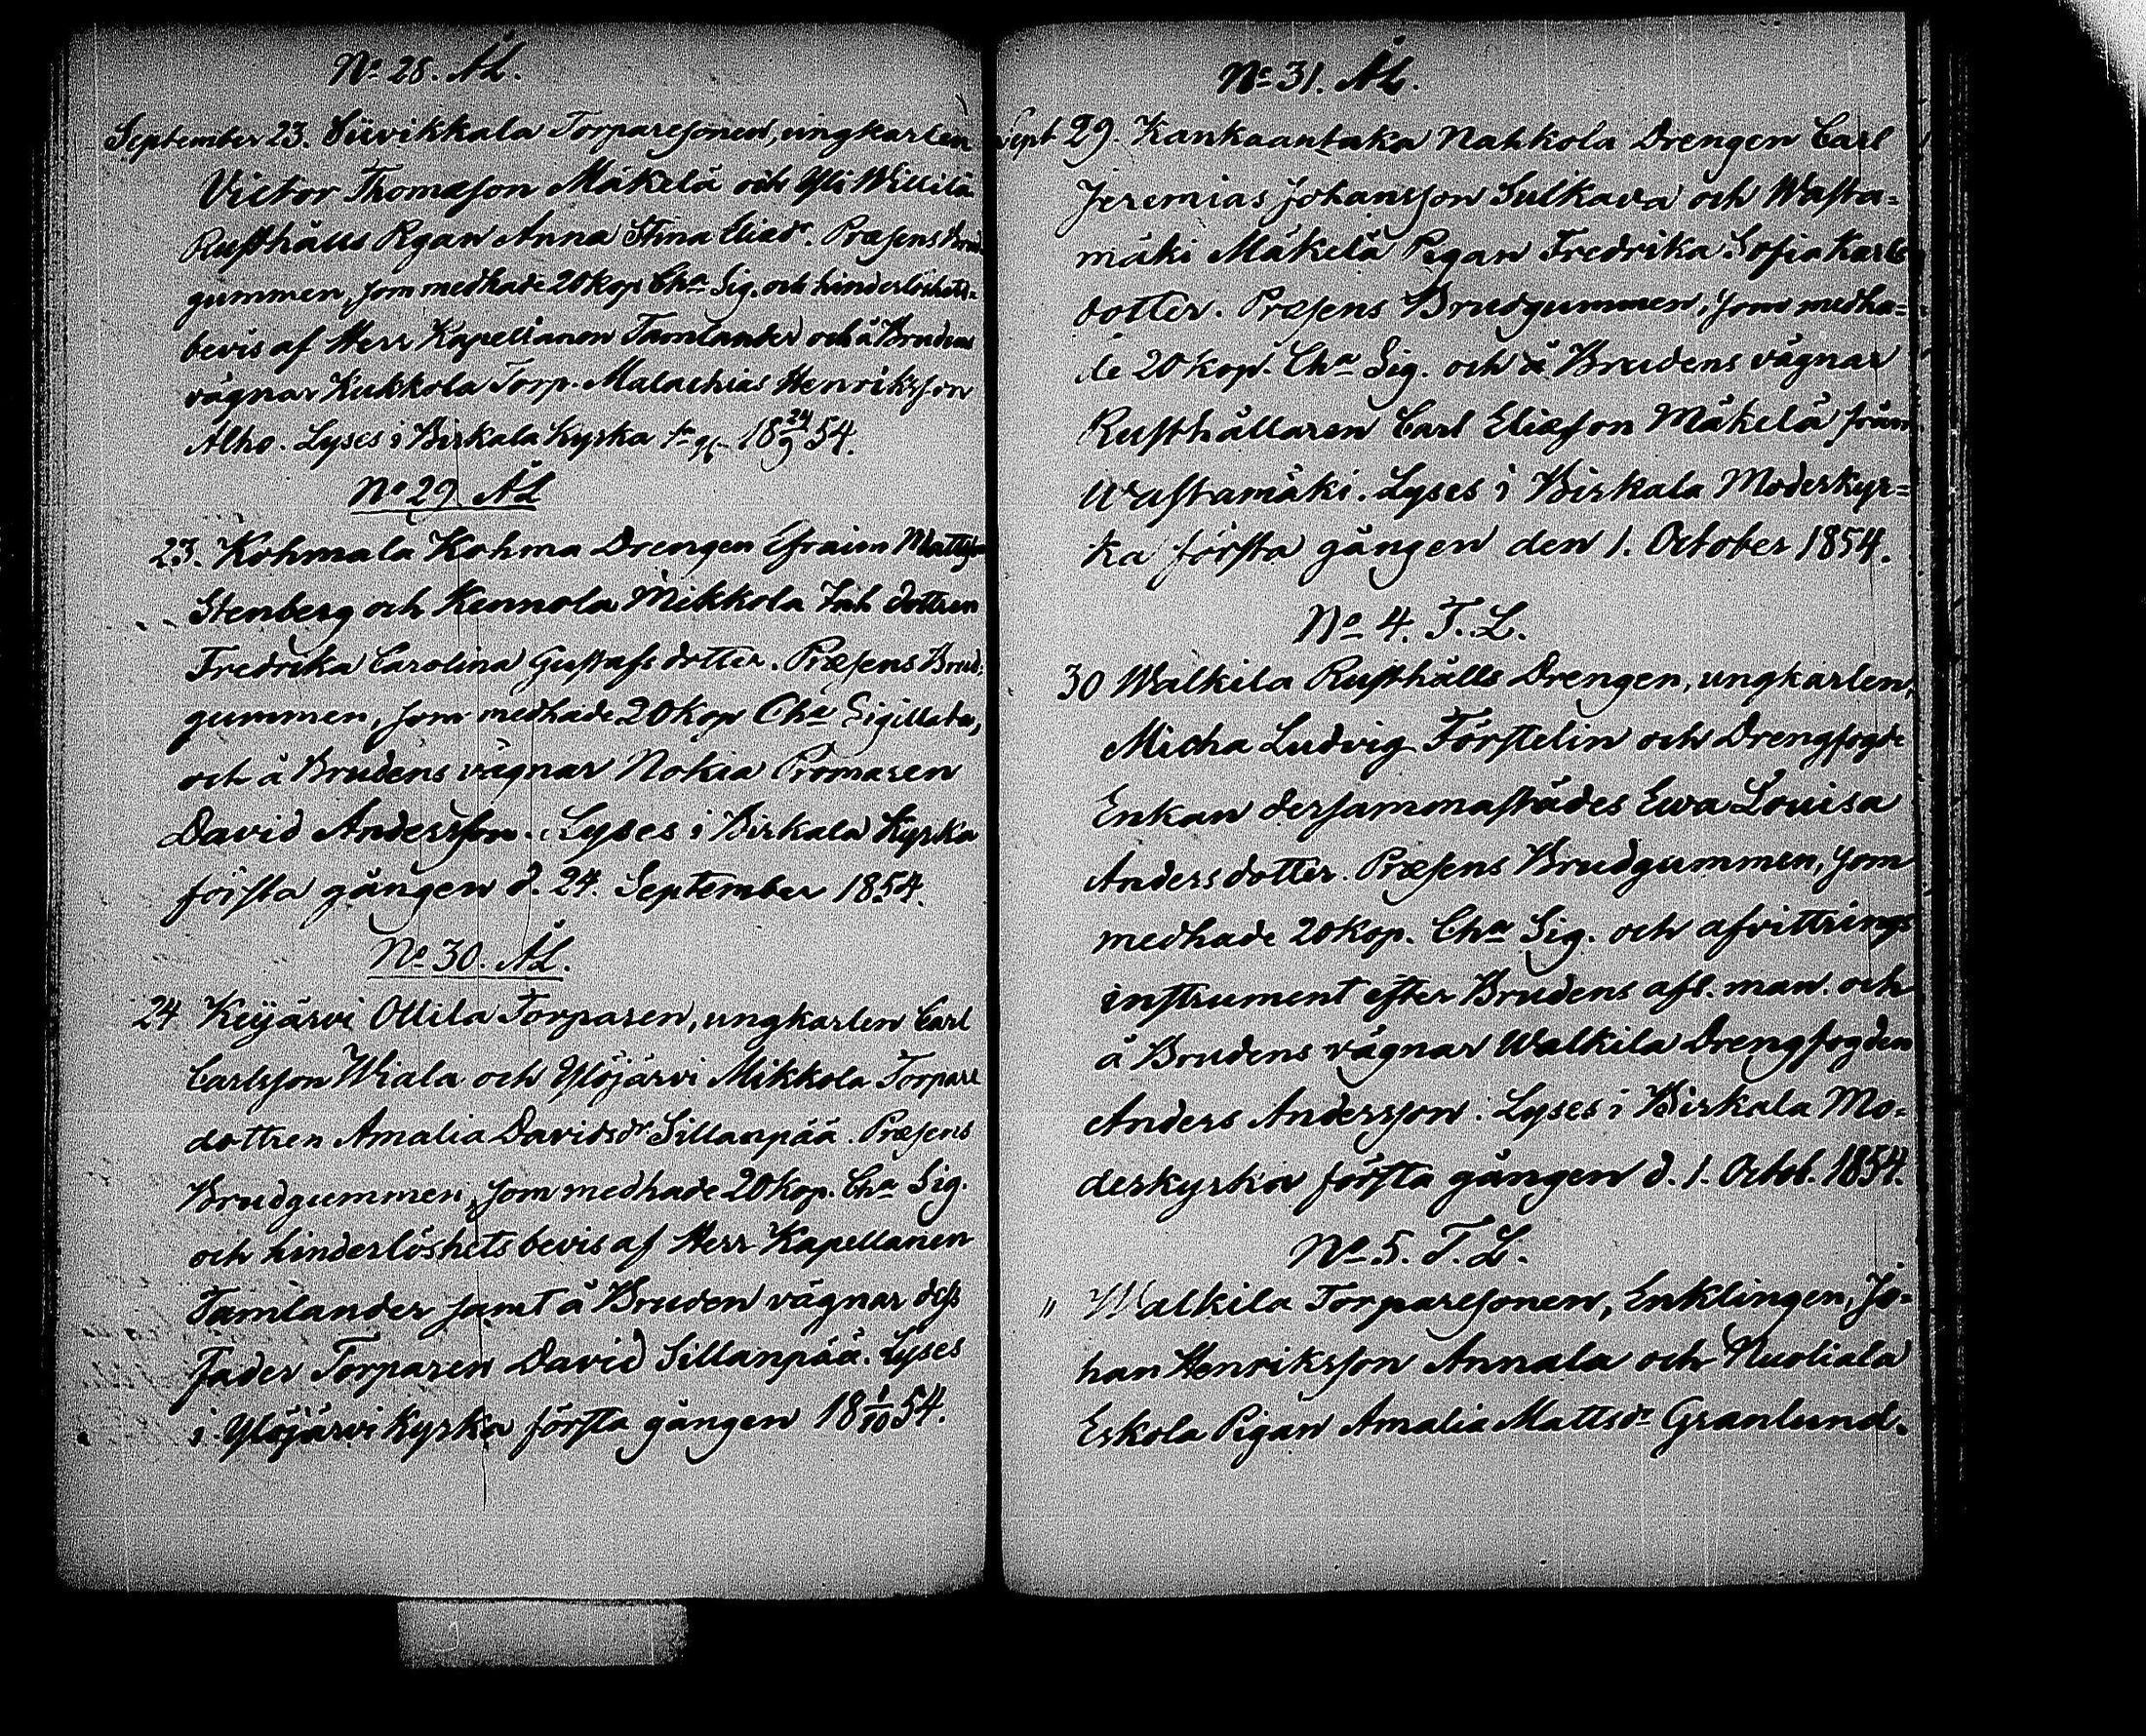 No 28. ÅL.
September 23. Siivikkala Torparesonen, ungkarlen
Victor Thomasson Mäkelä och Yli Willilä
Rusthålls Pigan Anna Stina Eliasdr. Præsens Brud
gummen, som medhade 20 kop Cha Sig. och hinderlöshets-
bevis af Herr Kapellanen Tamlander och å Brudens
vägnar Kukkola Torp. Malachias Henriksson
Alho. Lyses i Birkala Kyrka 18 24/9 54.
No 29 ÅL
23. Kohmala Kohma Drengen Efraim Mattsson
Stenberg och Kennola Mikkola Inh dottren
Fredrika Carolina Gustafsdotter. Præsens Brud-
gummen, som medhade 20 kop Cha Sigillata,
och å Brudens vägnar Nokia Promaren
David Andersson. Lyses i Birkala Kyrka
första gången d. 24. September 1854.
No 30. ÅL.
24 Keijärvi Ollila Torparen, ungkarlen Carl
Carlsson Wiala och Ylöjärvi Mikkola Torpare
dottren Amalia Davidsdr Sillanpää. Præsens
Brudgummen, som medhade 20 kop. Cha Sig.
och hinderlöshets bevis af Herr Kapellanen
Tamlander samt å Bruden vägnar dess
Fader Torparen David Sillanpää. Lyses
i Ylöjärvi Kyrka första gången 18 1/10 54.
No 31. ÅL.
Sept 29. Kankaantaka Nahkola Drengen Carl
Jeremias Johansson Sulkava och Wasta-
mäki Mäkelä Pigan Fredrika Sofia Karls
dotter. Præsens Brudgummen, som medha-
de 20 kop. Cha Sig. och å Brudens vägnar
Rusthållaren Carl Eliasson Mäkelä från
Wastamäki. Lyses i Birkala Moderkyr-
ka första gången den 1. October 1854.
No 4. T. L.
30 Walkila Rusthålls Drengen, ungkarlen,
Micha Ludvig Förstelin och Drengfogde
Enkan dersammastädes Ewa Lovisa
Andersdotter. Præsens Brudgummen, som
medhade 20 kop. Cha Sig. och afvittrings
instrument efter Brudens afl. man. och
å Brudens vägnar Walkila Drengfogden
Anders Andersson. Lyses i Birkala Mo-
derkyrka första gången d. 1. Octob. 1854.
No 5. T. L.
" Walkila Torparesonen, Enklingen, Jo-
han Henriksson Annala och Nuoliala
Eskola Pigan Amalia Mattsdr Granlund.